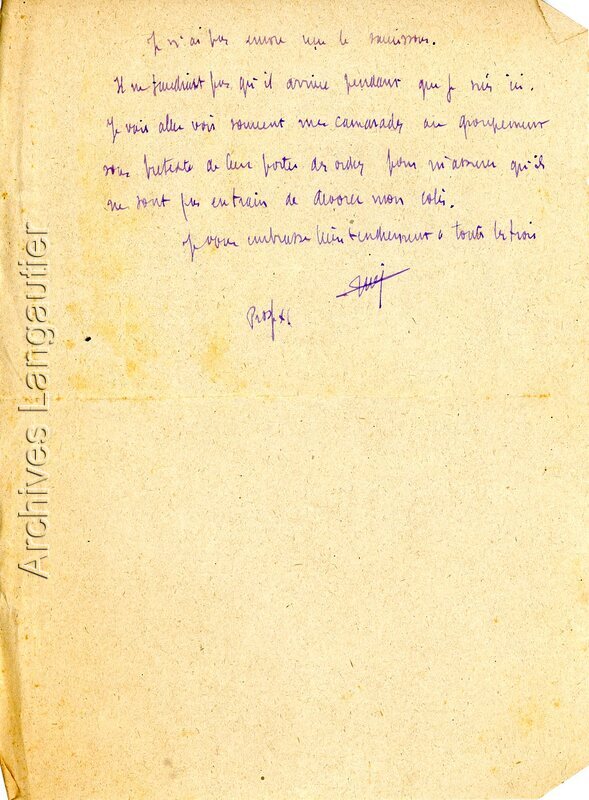 Je n'ai pas encore reçu le saucisson.
Il ne faudrait pas qu'il arrive pendant que je suis ici.
Je vais aller voir souvent mes camarades au groupement
sous pretexte de leur porter des ordres pour m'assurer qu'ils
ne sont pas en train de dévorer mon colis.
Je vous embrasse bien tendrement à toutes les trois
Archives Langautier